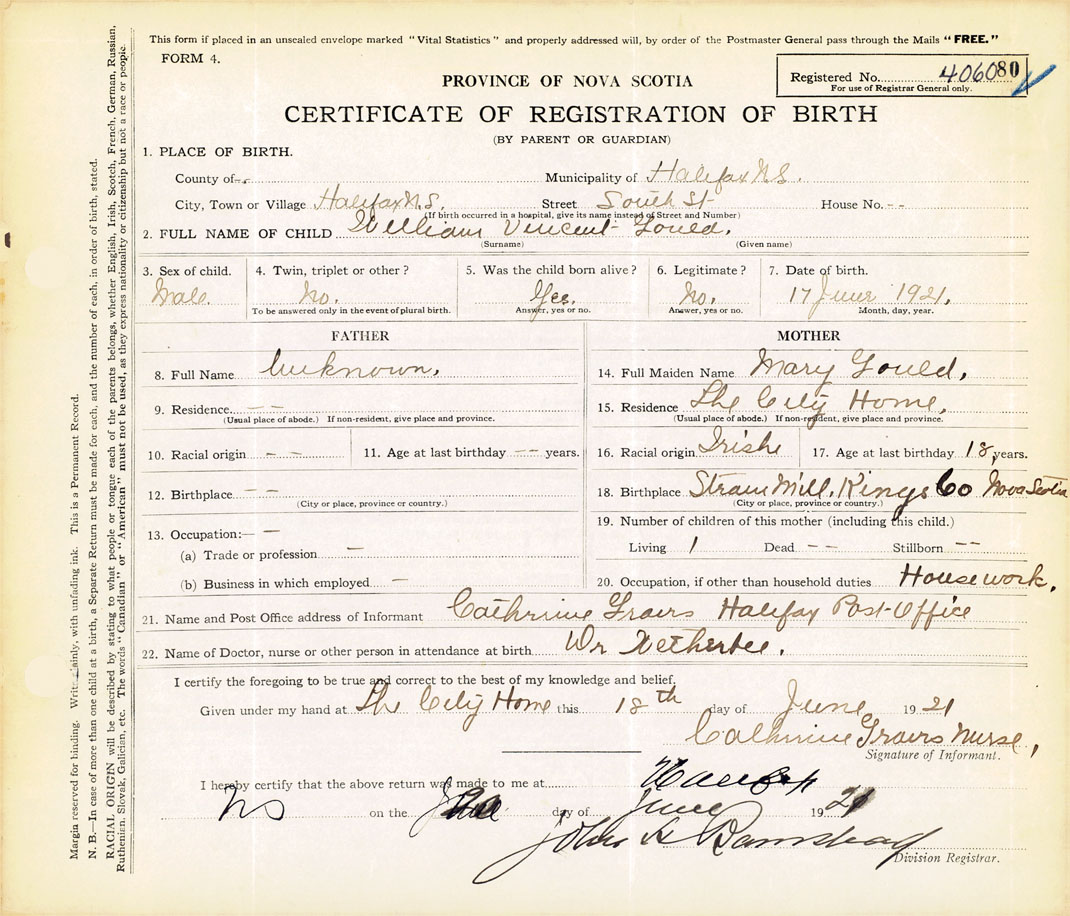 This form if placed in an unsealed envelope marked "Vital Statistics" and properly addressed will, by order of the Postmaster General pass through the Mails "FREE."
FORM 4.
Registered No. 406080
For use of Registrar General only.
PROVINCE OF NOVA SCOTIA
CERTIFICATE OF REGISTRATION OF BIRTH
(BY PARENT OR GUARDIAN)
1. PLACE OF BIRTH.
County of Municipality of Halifax N.S.
City, Town or Village Halifax N.S. Street South St House No. - -
(If birth occurred in a hospital, give its name instead of Street and Number)
2. FULL NAME OF CHILD William Vincent Gould.
(Surname) (Given name)
3. Sex of child. 4. Twin, triplet or other? 5. Was the child born alive? 6. Legitimate? 7. Date of birth.
Male. No. Yes. No. 17 June 1921.
To be answered only in the event of plural birth. Answer, yes or no. Answer, yes or no. Month, day, year.
FATHER
8. Full Name Unknown.
9. Residence - -
(Usual place of abode.) If non-resident, give place and province.
10. Racial origin - - 11. Age at last birthday - - years.
12. Birthplace - -
(City or place, province or country.)
13. Occupation:- -
(a) Trade or profession -
(b) Business in which employed -
MOTHER
14. Full Maiden Name Mary Gould,
15. Residence The City Home,
(Usual place of abode.) If non-resident, give place and province.
16. Racial origin Irish 17. Age at last birthday 18, years.
18. Birthplace Mill, Kings Co Nova Scotia
(City or place, province or country.)
19. Number of children of this mother (including this child.)
Living 1 Dead - - Stillborn - -
20. Occupation, if other than household duties Housework.
21. Name and Post Office address of Informant Halifax Post-Office
22. Name of Doctor, nurse or other person in attendance at birth Dr
I certify the foregoing to be true and correct to the best of my knowledge and belief.
Given under my hand at The City Home this 18th day of June 1921
Nurse,
Signature of Informant.
I hereby certify that the above return was made to me at Halifax
NS on the day of June 1921
John
Division Registrar.
Margin reserved for binding. Write plainly, with unfading ink. This is a Permanent Record.
N. B.—In case of more than one child at a birth, a Separate Return must be made for each, and the number of each, in order of birth, stated.
RACIAL ORIGIN will be described by stating to what people or tongue each of the parents belongs, whether English, Irish, Scotch, French, German, Russian,
Ruthenian, Slovak, Galician, etc. The words "Canadian" or "American" must not be used, as they express nationality or citizenship but not a race or people.